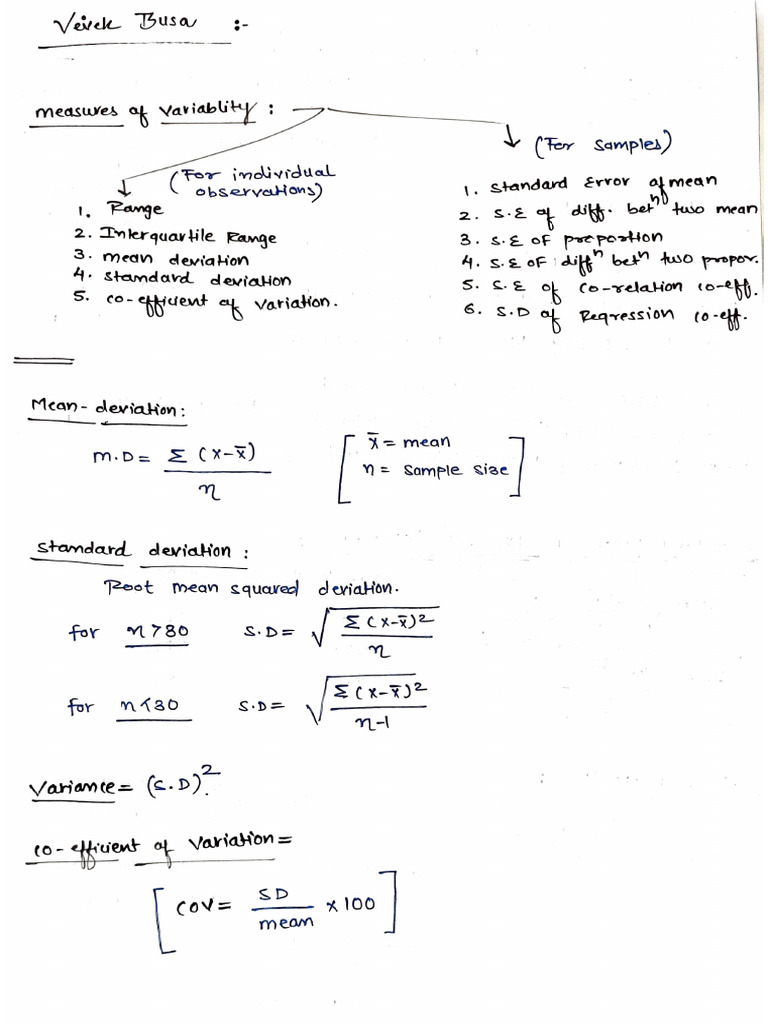 Vivek Busa :-
measures of variablity :
(For individual
observations)
1. Range
2. Interquartile Range
3. mean deviation
4. standard deviation
5. co-efficient of variation.
(For samples)
1. Standard Error of mean
2. S.E of diff. betⁿ two mean
3. S.E OF proportion
4. S.E OF diffⁿ betⁿ two propor.
5. S.E of co-relation co-eff.
6. S.D of Regression co-eff.
Mean-deviation:
M.D = Σ (x-x̄) / n
[ x̄ = mean
n = sample size ]
Standard deviation :
Root mean squared deviation.
for n>30 S.D = √(Σ(x-x̄)² / n)
for n<30 S.D = √(Σ(x-x̄)² / n-1)
Variance = (S.D)².
co-efficient of variation =
[ COV = SD / mean × 100 ]